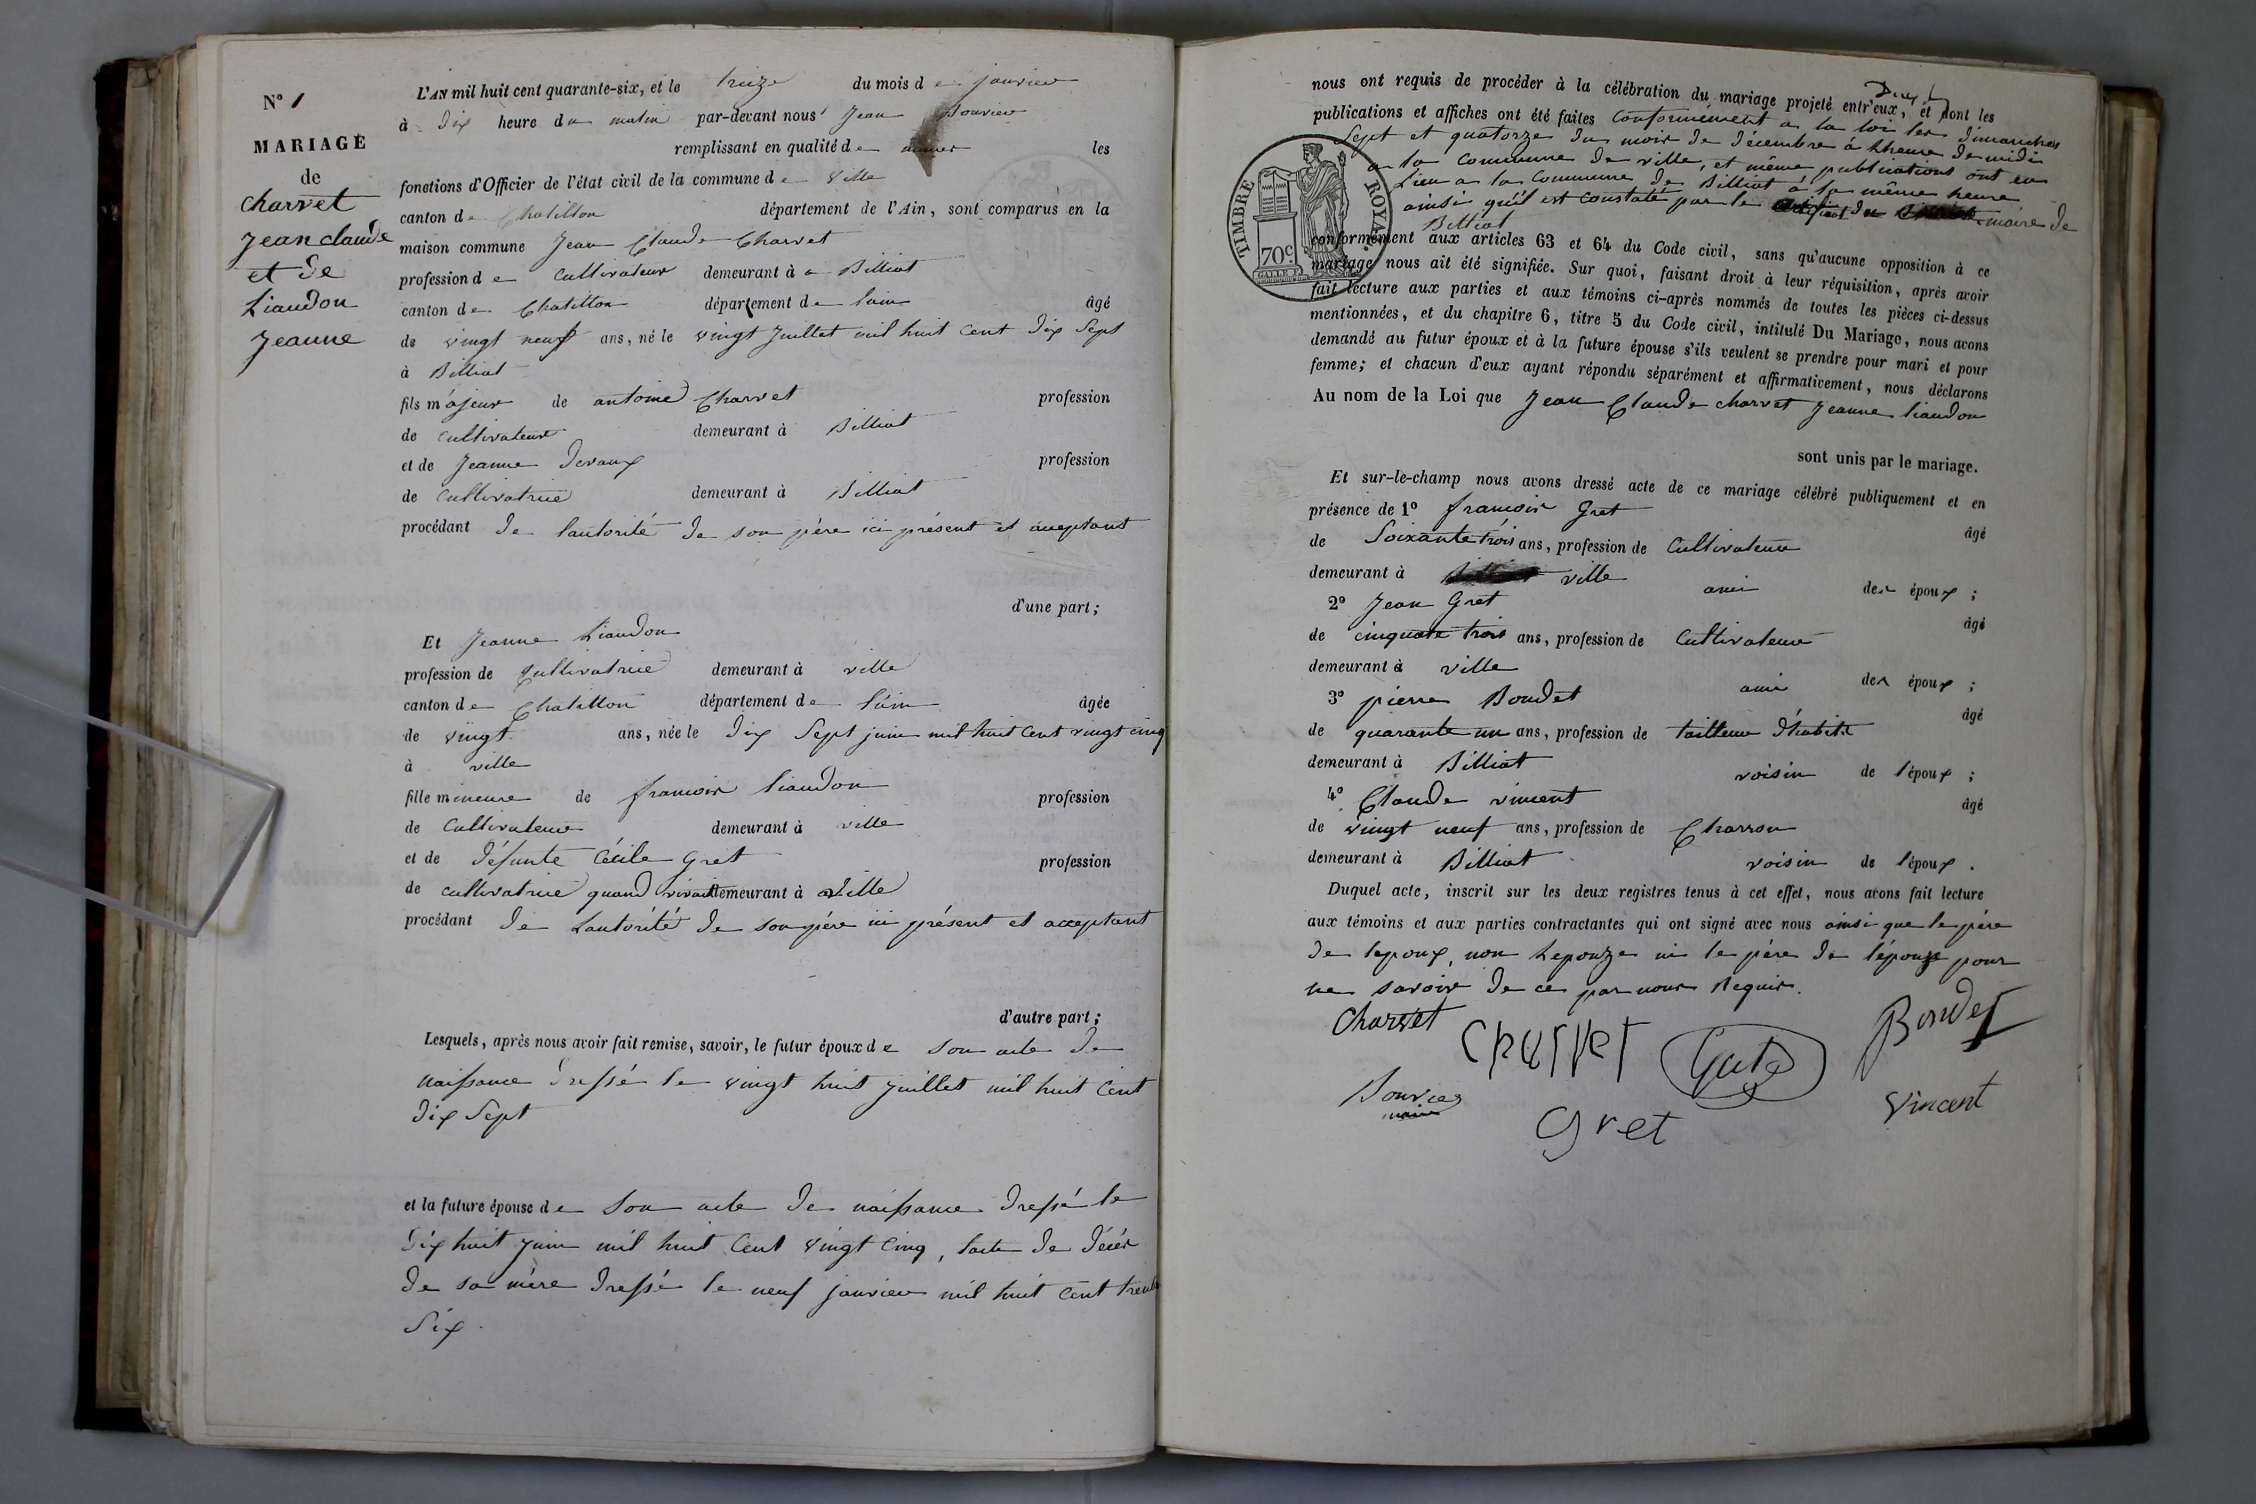 N° 1
MARIAGE
de
Charvet
Jean claude
et de
Liaudon
Jeanne
L'AN mil huit cent quarante-six, et le treize du mois de janvier
à dix heure du matin par-devant nous Jean Bouvier
remplissant en qualité de maire les
fonctions d'Officier de l'état civil de la commune de Ville
canton de Chatillon département de l'Ain, sont comparus en la
maison commune Jean Claude Charvet
profession de cultivateur demeurant à a Billiat
canton de Chatillon département de lain âgé
de vingt neuf ans, né le vingt Juillet mil huit cent dix Sept
à Billiat
fils majeur de antoine Charvet profession
de cultivateur demeurant à Billiat
et de Jeanne Devaux profession
de cultivatrice demeurant à Billiat
procédant de lautorité de son père ici présent et acceptant
d'une part;
Et Jeanne Liaudon
profession de Cultivatrice demeurant à ville
canton de Chatillon département de l'ain âgée
de vingt ans, née le dix Sept juin mil huit Cent vingt cinq
à ville
fille mineure de francois liaudon profession
de Cultivateur demeurant à ville
et de défunte Cécile Gret profession
de cultivatrice quand vivait demeurant à ville
procédant de Lautórité de son père ici présent et acceptant
d'autre part;
Lesquels, après nous avoir fait remise, savoir, le futur époux de son acte de
naissance dressé le vingt huit juillet mil huit Cent
dix Sept
et la future épouse de Son acte de naissance dressé le
dix huit Juin mil huit Cent vingt Cinq, lacte de décès
de sa mère dressé le neuf janvier mil huit cent trente
Six.
nous ont requis de procéder à la célébration du mariage projeté entr'eux, et dont les
publications et affiches ont été faites Conformément a la loi les dimanches
Sept et quatorze du mois de décembre à lheure de midi
a la Commune de ville, et même publications ont eu
Lieu a la Commune de Billiat à la même heure
ainsi qu'il est constaté par le maire de
Billiat
TIMBRE ROYAL
70c
conformément aux articles 63 et 64 du Code civil, sans qu'aucune opposition à ce
mariage nous ait été signifiée. Sur quoi, faisant droit à leur réquisition, après avoir
fait lecture aux parties et aux témoins ci-après nommés de toutes les pièces ci-dessus
mentionnées, et du chapitre 6, titre 5 du Code civil, intitulé Du Mariage, nous avons
demandé au futur époux et à la future épouse s'ils veulent se prendre pour mari et pour
femme; et chacun d'eux ayant répondu séparément et affirmativement, nous déclarons
Au nom de la Loi que Jean Claude charvet Jeanne liaudon
sont unis par le mariage.
Et sur-le-champ nous avons dressé acte de ce mariage célébré publiquement et en
présence de 1° francois Gret âgé
de Soixante trois ans, profession de Cultivateur
demeurant à ville ami des époux;
2° Jean Gret âgé
de cinquate trois ans, profession de Cultivateur
demeurant à ville ami des époux;
3° pierre Boudet âgé
de quarante un ans, profession de tailleur d'habits
demeurant à Billiat voisin de l'époux;
4° Claude vincent âgé
de vingt neuf ans, profession de Charron
demeurant à Billiat voisin de l'époux.
Duquel acte, inscrit sur les deux registres tenus à cet effet, nous avons fait lecture
aux témoins et aux parties contractantes qui ont signé avec nous ainsi que le père
de lepoux, non Lepouze ni le père de l'épouse pour
ne savoir de ce par nous Requis.
Charvet
Charvet
Boudet
Bouvier
maire
Gret
Vincent